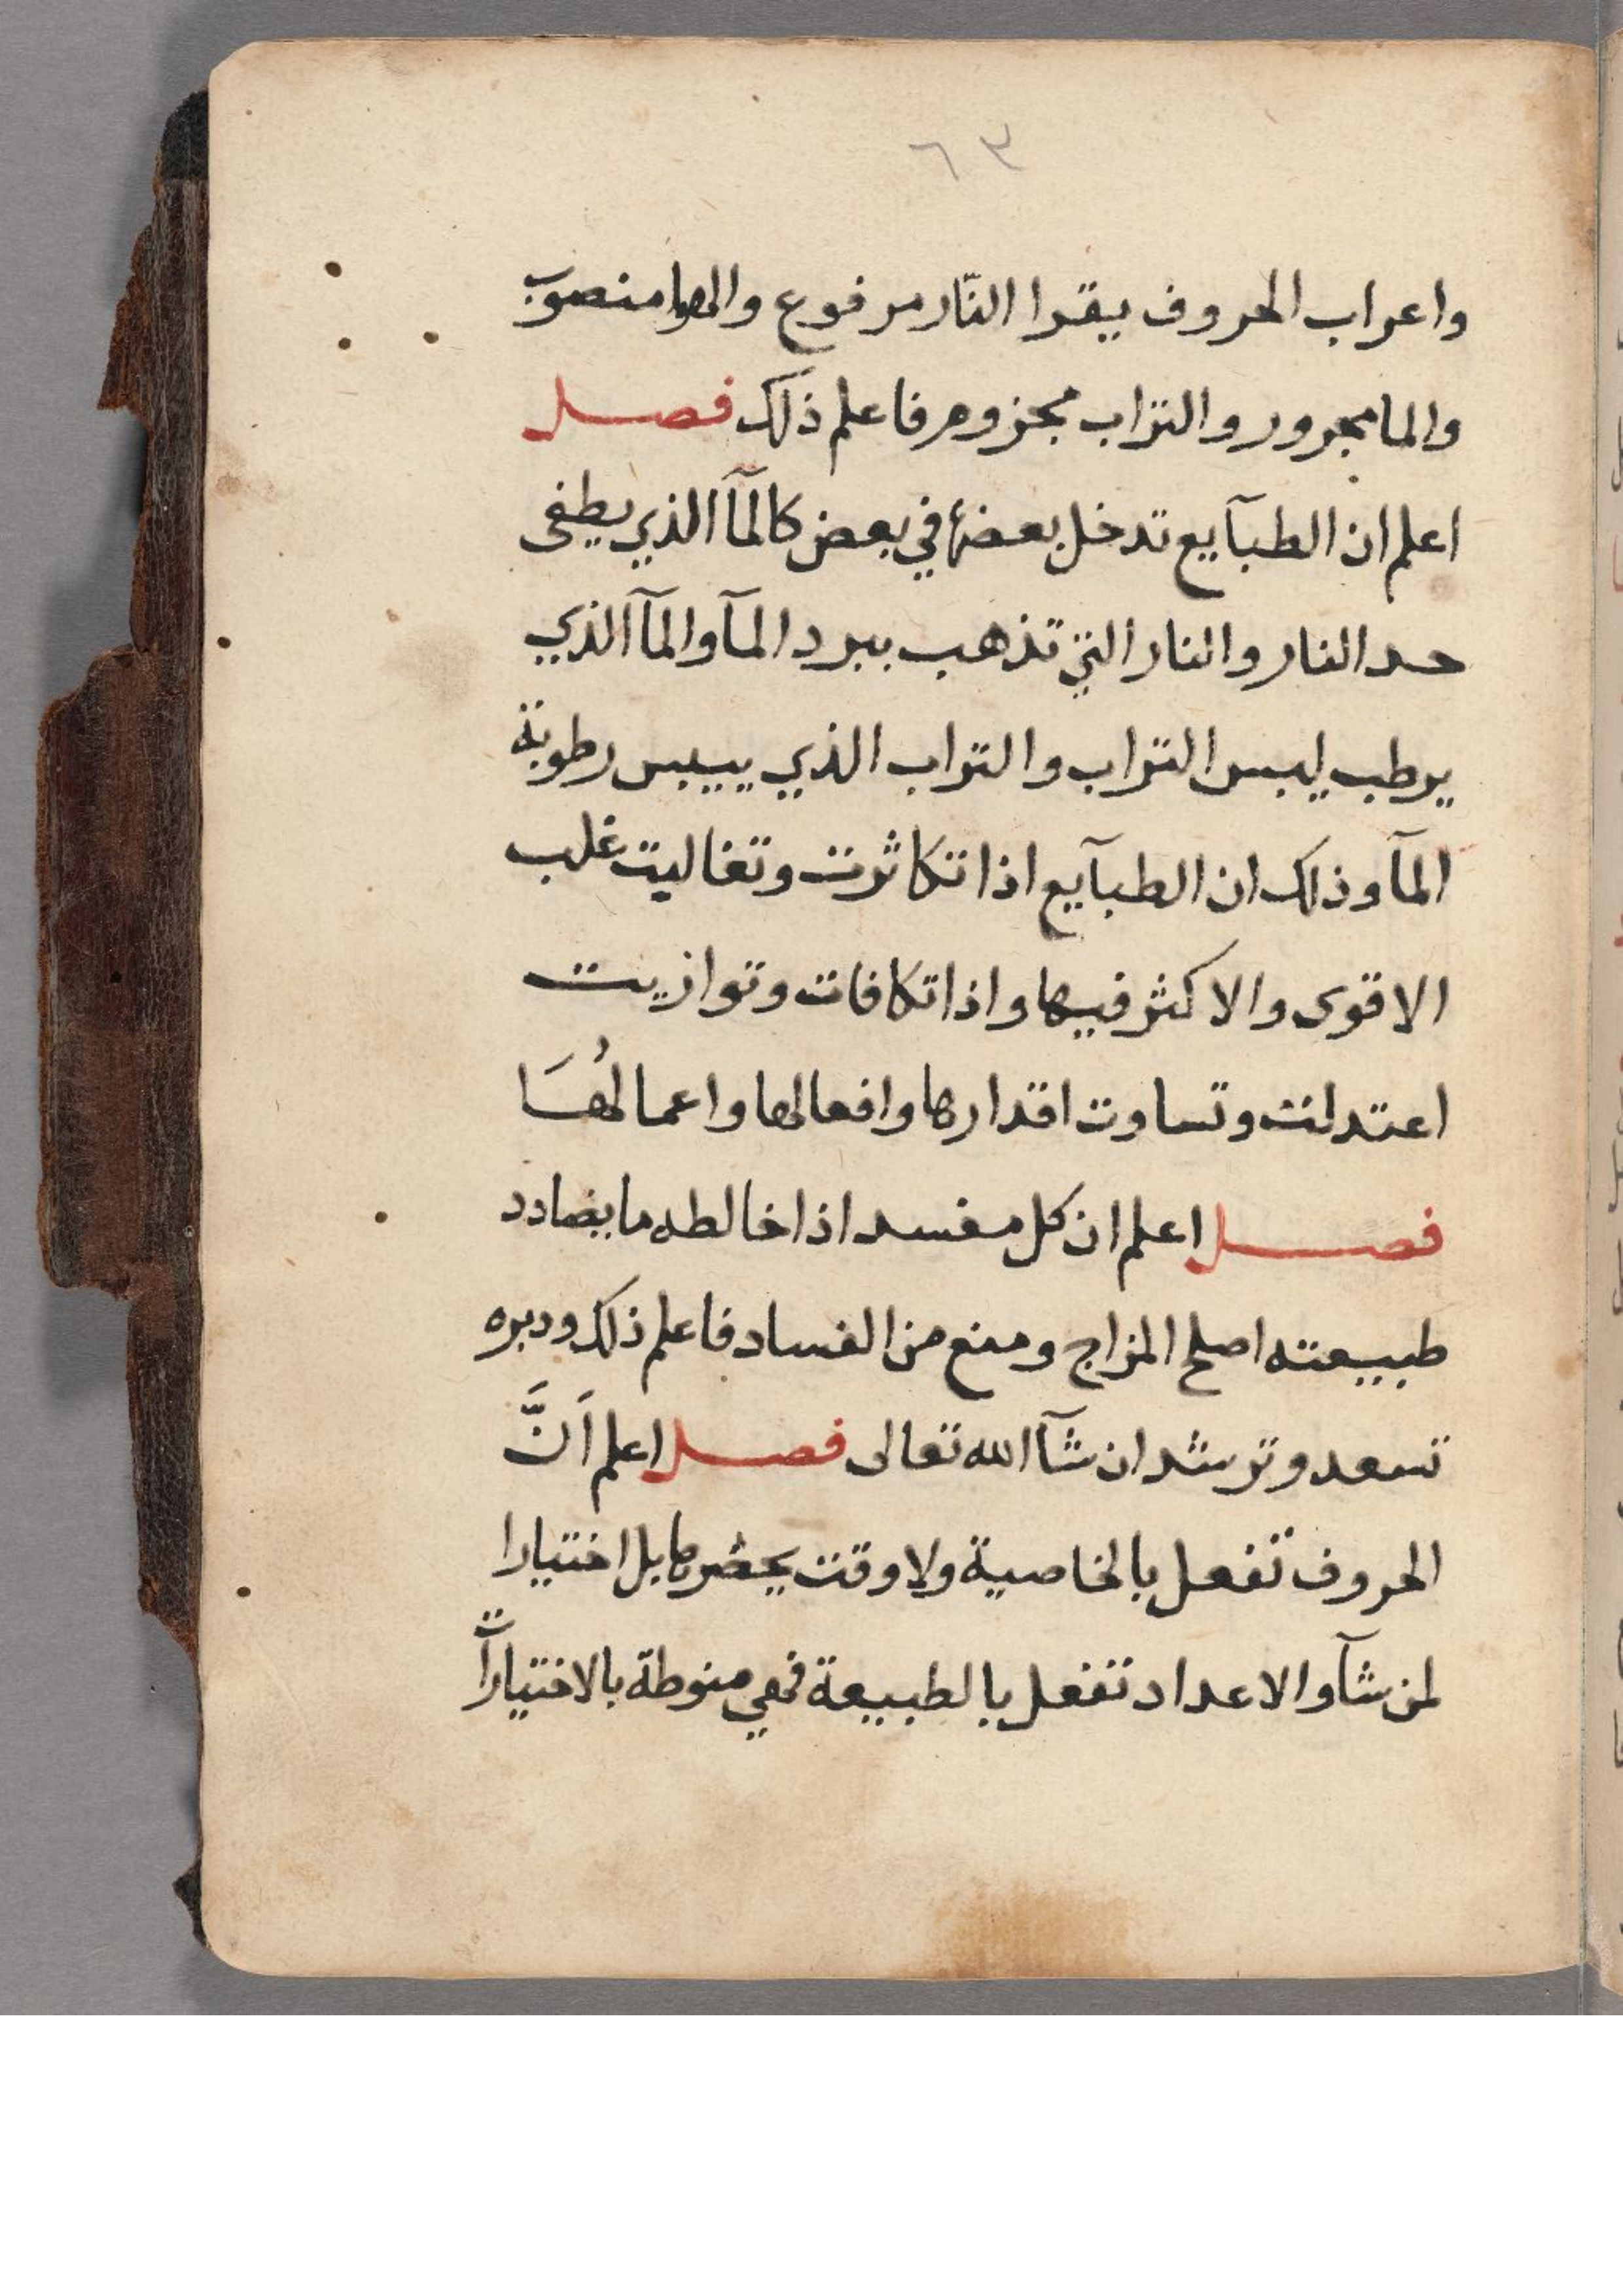 ٦٣
واعراب الحروف يقرا النّار مرفوع والهوا منصوب
والما مجرور والتراب مجزوم فاعلم ذلك فصل
اعلم ان الطبآيع تدخل بعضها في بعض كالمآ الذي يطفى
حد النار والنار التي تذهب ببرد المآ والمآ الذي
يرطب ليبس التراب والتراب الذي ييبس رطوبة
المآ وذلك ان الطبآيع اذا تكاثرت وتغاليت غلب
الاقوى والاكثر فيها واذا تكافات وتوازيت
اعتدلت وتساوت اقدارها وافعالها واعمالُهَا
فصل اعلم ان كل مفسد اذا خالطه ما يضادد
طبيعته اصلح المزاج ومنع من الفساد فاعلم ذلك ودبره
تسعد وترشد ان شآ الله تعالى فصل اعلم اَنَّ
الحروف تفعل بالخاصية ولا وقت يحضرها بل اختيارا
لمن شآ والاعداد تفعل بالطبيعة فهي منوطة بالاختيارات